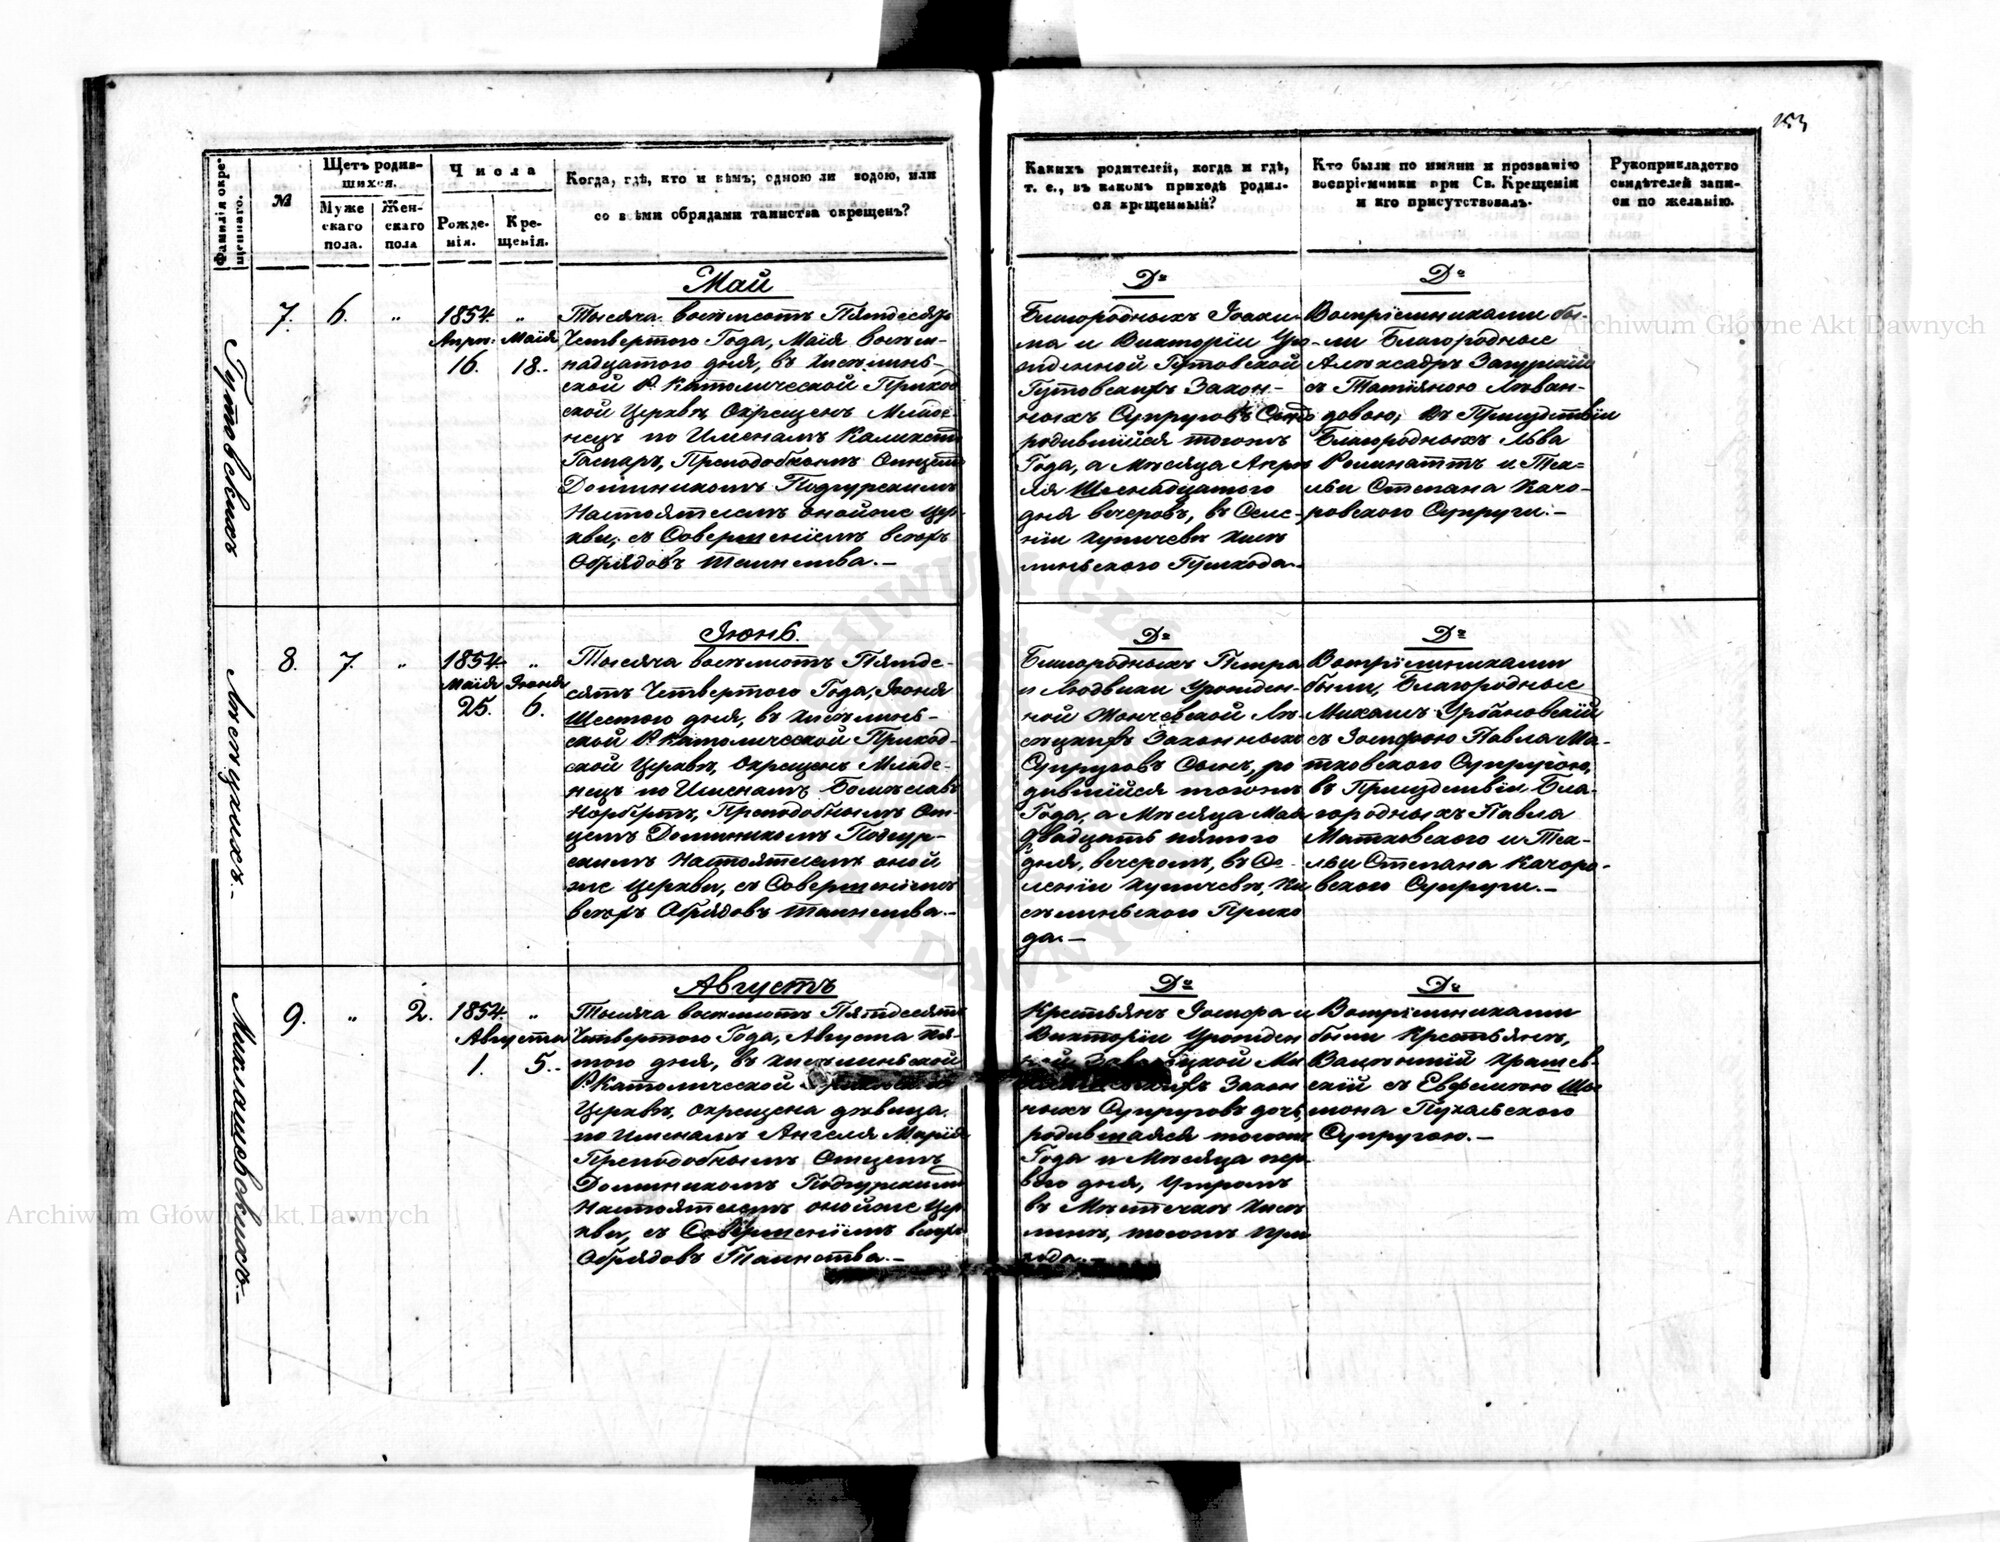 153
Фамилія окре-
щеннаго.
№
Щетъ родив-
шихся.
Муже
скаго
пола.
Жен-
скаго
пола
Числа
Рожде-
нія.
Кре-
щенія.
Когда, гдѣ, кто и кѣмъ; одною ли водою, или
со всѣми обрядами таинства окрещенъ?
Какихъ родителей, когда и гдѣ,
т. е., въ какомъ приходѣ родил-
ся крещенный?
Кто были по имяни и прозванію
воспріемники при Св. Крещеніи
и кто присутствовалъ.
Рукоприкладство
свидѣтелей запи-
си по желанію.
Гутовскихъ
7.
6.
"
1854.
Апрѣ:
16.
"
Маія
18.
Май
Тысяча восемьсотъ Пятдесятъ
Четвертого Года, Маія восем-
надцатого дня, въ Киселинь-
ской Р. Католической Приход
ской Церквѣ, Окрещенъ Младе-
нецъ по Именамъ Каликстъ
Гаспаръ, Преподобнымъ Отцемъ
Доминикомъ Подгурскимъ
Настоятелемъ онойже Цер-
кви, съ Совершеніемъ всѣхъ
Обрядовъ таинства.—
До
Благородныхъ Іоаки-
ма и Викторіи Уро-
жденной Гутовской
Гутовскихъ Закон-
ныхъ Супруговъ Сынъ
родившійся тогожъ
Года, а Мѣсяца Апрѣ
ля Шеснадцатого
дня вечеромъ, въ Селе-
ніи Купичевѣ Кисѣ
линьского Прихода.—
До
Воспріемниками бы-
ли Благородные
Алѣксадръ Загурскій
съ Татіяною Леван-
довою, въ Присудствіи
Благородныхъ Льва
и Тек-
ли Степана Качо-
ровского Супруги.—
8.
7.
"
1854
Маія
25.
"
Іюня
6.
Іюнь.
Тысяча восемьсотъ Пятде-
сятъ Четвертого Года, Іюня
Шестого дня, въ Киселинь-
ской Р. Католической Приход-
ской Церквѣ, Окрещенъ Младе-
нецъ по Именамъ Болеславъ
Норбертъ, Преподобнымъ От-
цемъ Доминикомъ Подгур-
скимъ Настоятелемъ оной
же Церкви, съ Совершеніемъ
всѣхъ Обрядовъ таинства.—
До
Благородныхъ Петра
и Людвики Урожден-
ной Лѣ-
сецкихъ Законныхъ
Супруговъ Сынъ, ро
дившійся тогожъ
Года, а Мѣсяца Маія
двадцать пятого
дня, вечеромъ, въ Се-
леніи Купичевѣ, Ки
сѣлиньского Прихо
да.—
До
Воспріемниками
были, Благородные
Михаилъ Урбановскій
съ Зосифою Павла Ма-
тковского Супругою,
въ Присудствіи Бла-
городныхъ Павла
Матковского и Тек-
ли Степана Качоро-
вского Супруги.—
Миклашевовихъ.—
9.
"
2.
1854.
Августа
1.
"
5.
Августъ
Тысяча восемьсотъ Пятдесятъ
Четвертого Года, Августа пя-
того дня, въ Киселиньской
Р. Католической
Церквѣ, окрещена дѣвица
по Именамъ Ангеля Марія
Преподобнымъ Отцемъ
Доминикомъ Подгурскимъ
Настоятелемъ онойже Цер
кви, съ Совершеніемъ всѣхъ
Обрядовъ Таинства.—
До
Крестьянъ Іосифа и
Викторіи Урожден
Ми
Закон
ныхъ Супруговъ дочь,
родившаяся тогожъ
Года и Мѣсяца пер-
вого дня, Утромъ
въ Мѣстечкѣ Кисѣ
линѣ, тогожъ При
хода.—
До
Воспріемниками
были Крестьяне,
Валентій Крашев-
скій съ Евфеміею Ши-
мона Пухальского
Супругою.—
Archiwum Główne Akt Dawnych
Archiwum Główne Akt Dawnych